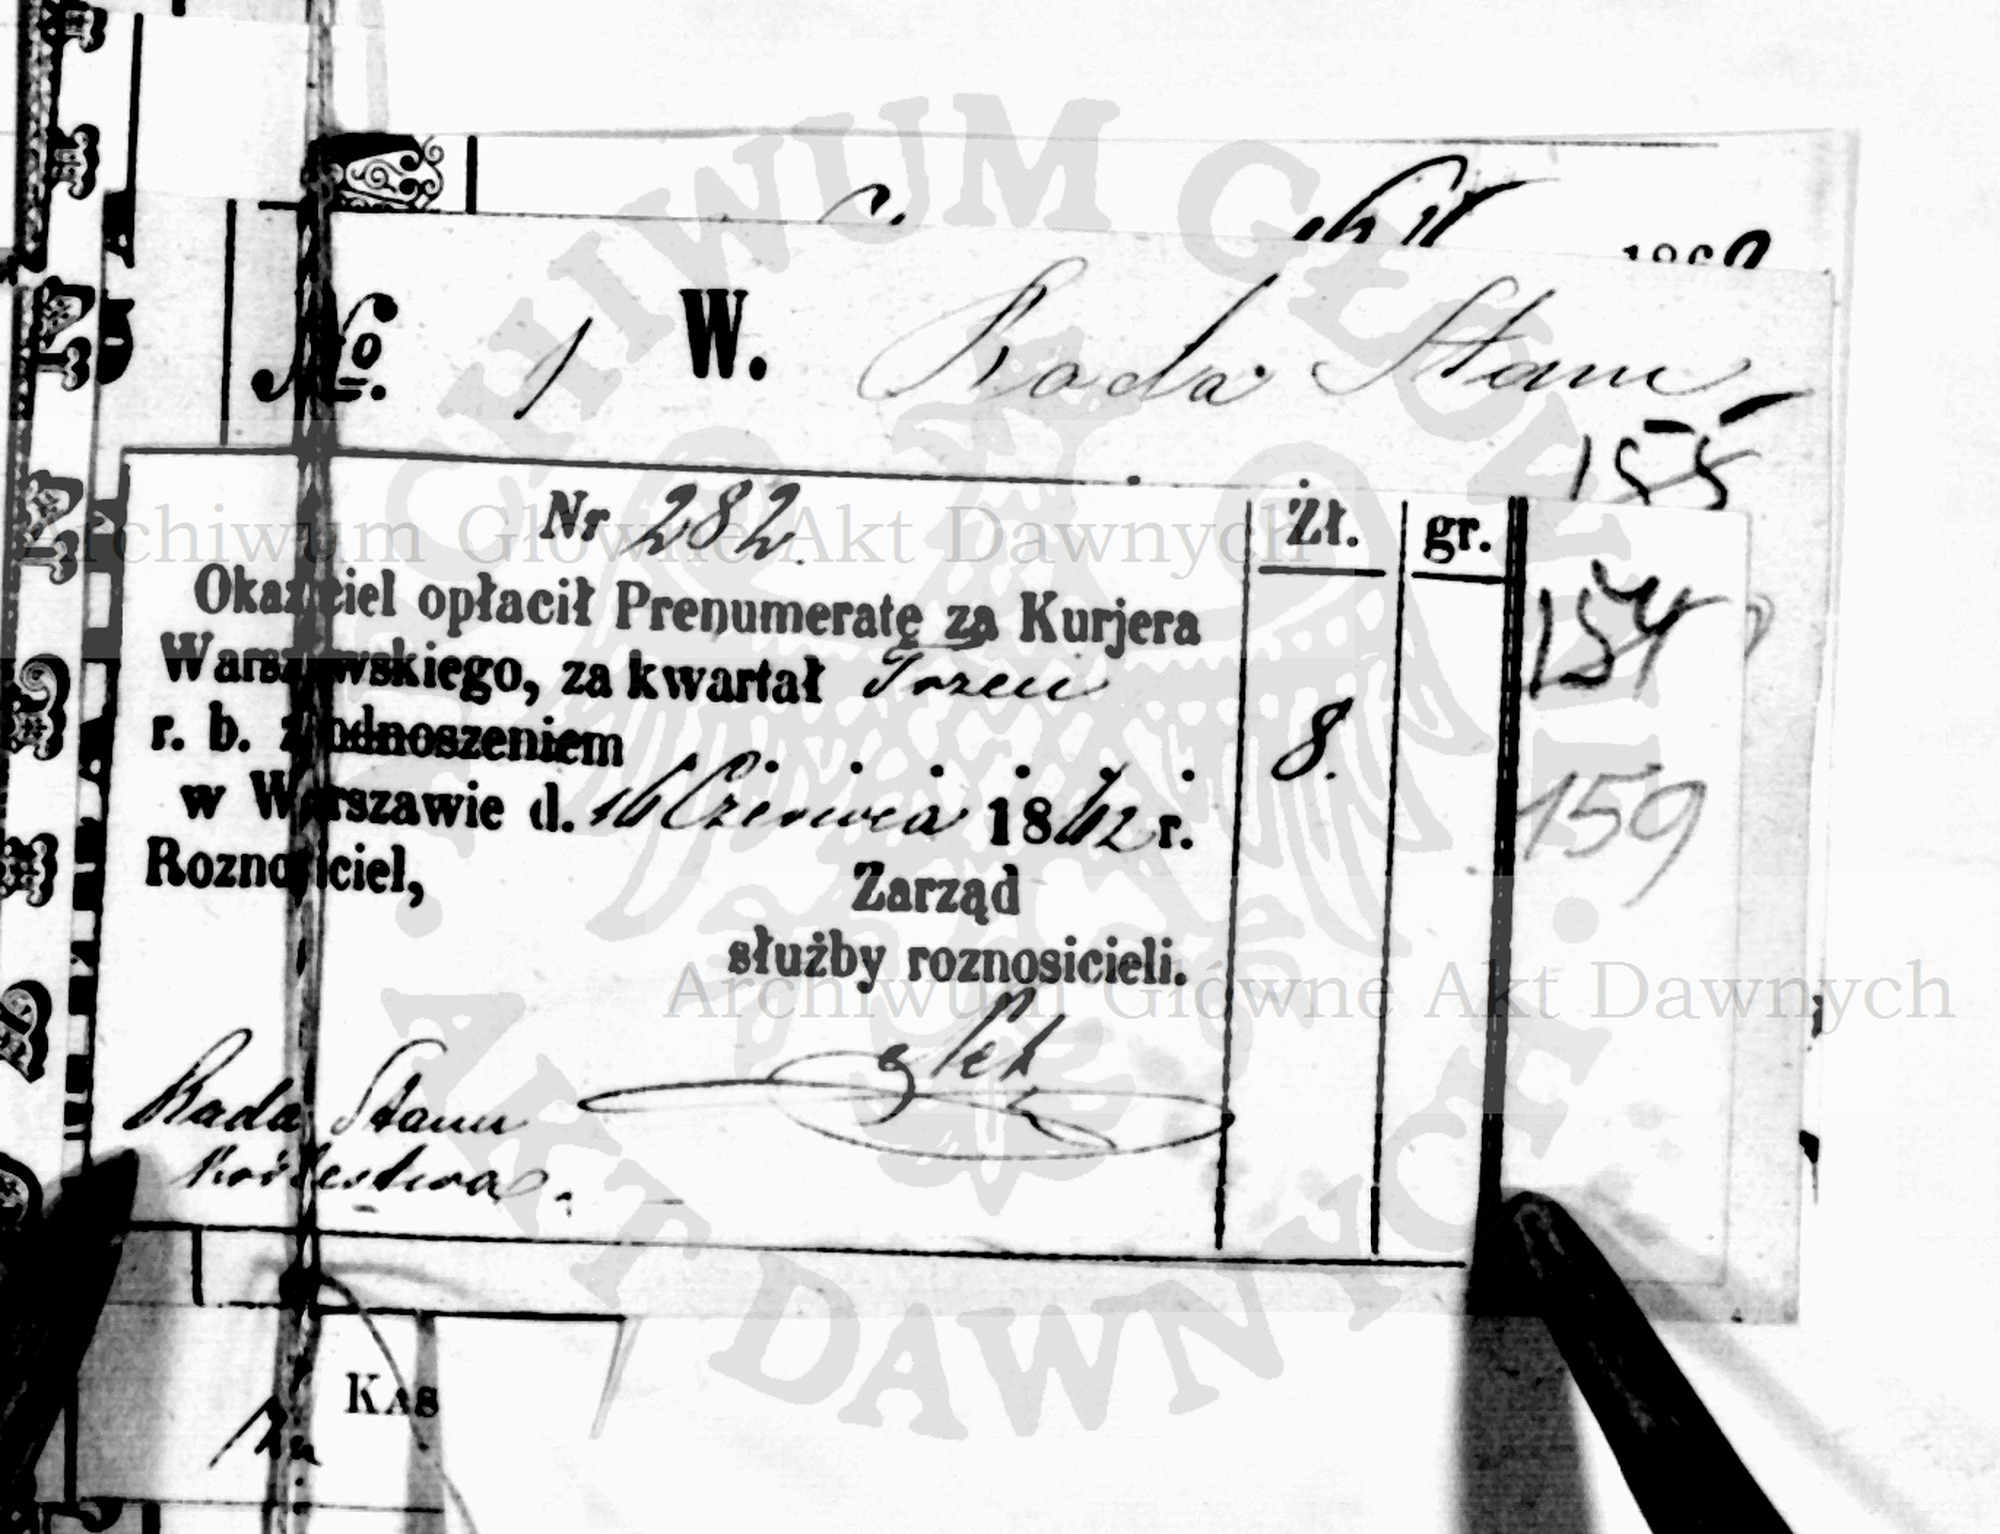 No. 1 W. Rada Stanu
155
Nr 282 Żł. gr.
Okaziciel opłacił Prenumeratę za Kurjera 154
Warszawskiego, za kwartał Trzeci
r. b. z odnoszeniem 8.
w Warszawie d. 16 Czerwca 1862 r. 159
Roznosiciel,
Zarząd
służby roznosicieli.
Rada Stanu
Królestwa.
KAS
Archiwum Główne Akt Dawnych
Archiwum Główne Akt Dawnych
ARCHIWUM GŁÓWNE AKT DAWNYCH